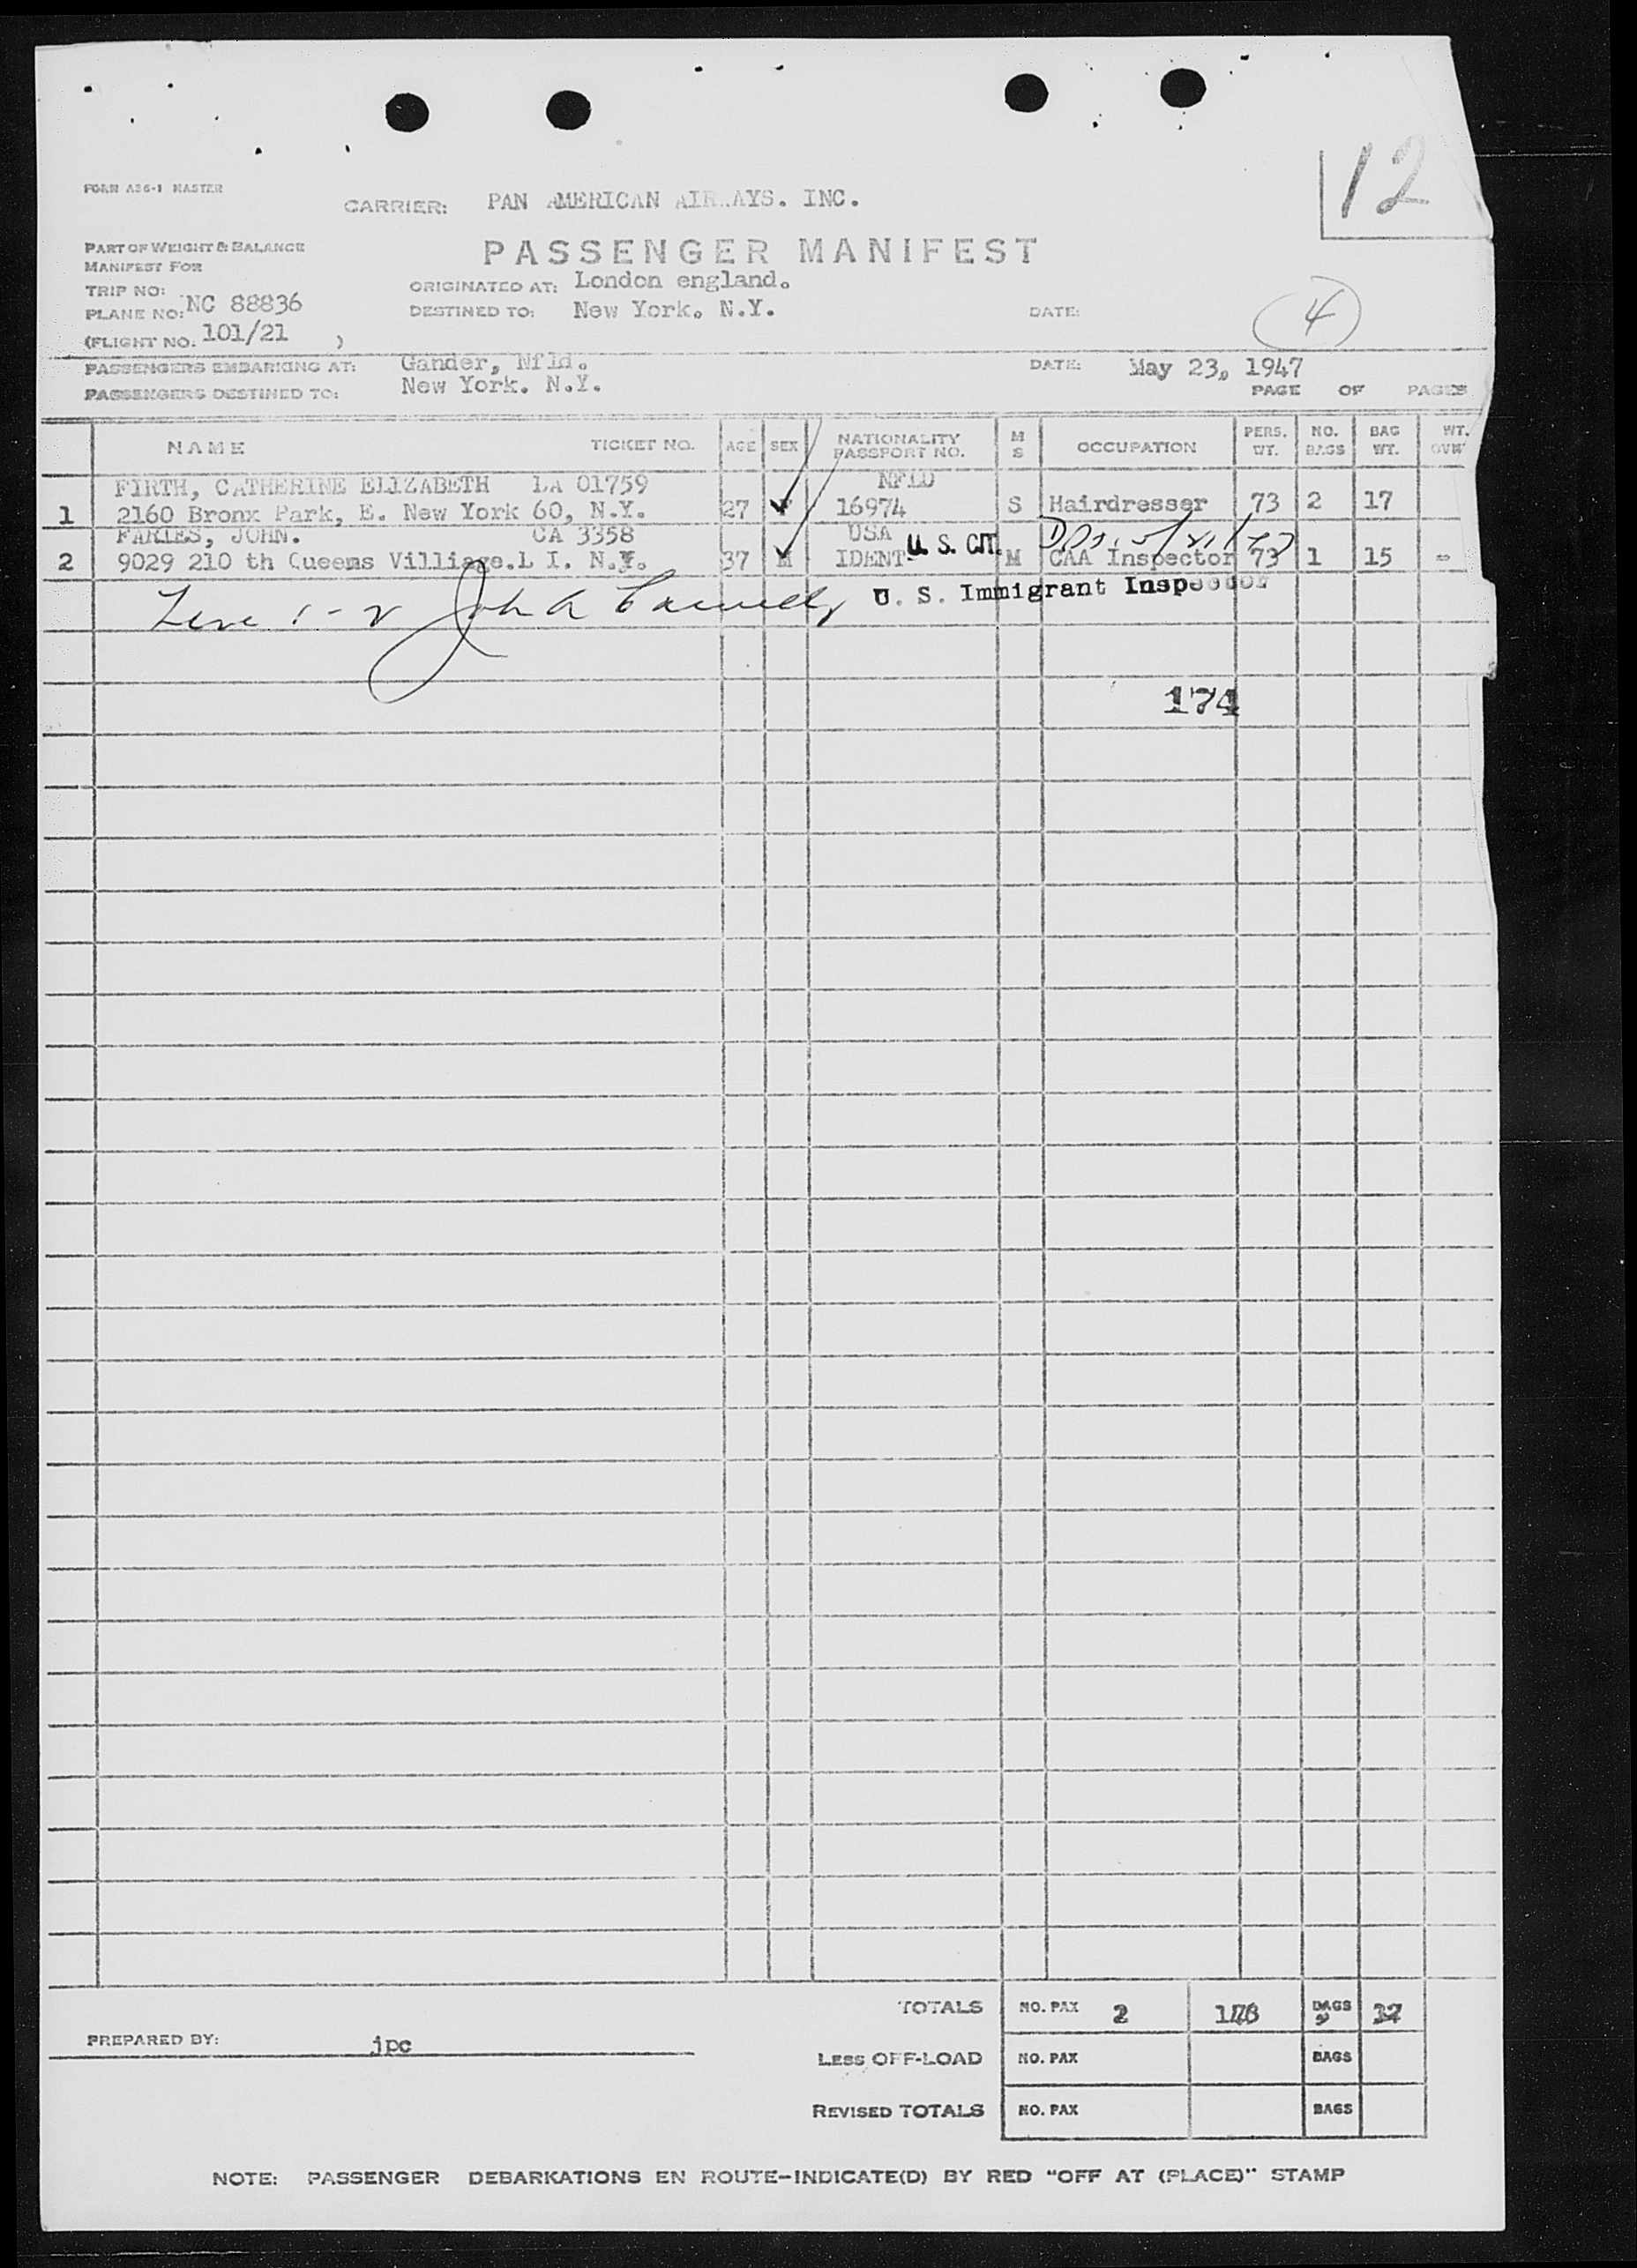 FORM A36-1 MASTER
12
CARRIER: PAN AMERICAN AIRWAYS. INC.
PART OF WEIGHT & BALANCE
MANIFEST FOR
PASSENGER MANIFEST
TRIP NO:
ORIGINATED AT: London england.
PLANE NO: NC 88836
DESTINED TO: New York. N.Y.
DATE:
4
(FLIGHT NO. 101/21 )
PASSENGERS EMBARKING AT: Gander, Nfld.
DATE: May 23, 1947
PASSENGERS DESTINED TO: New York. N.Y.
PAGE OF PAGES
NAME TICKET NO. AGE SEX NATIONALITY PASSPORT NO. M S OCCUPATION PERS. WT. NO. BAGS BAG WT. WT. OVW
FIRTH, CATHERINE ELIZABETH LA 01759 NFLD
1 2160 Bronx Park, E. New York 60, N.Y. 27 F 16974 S Hairdresser 73 2 17
FARIES, JOHN. CA 3358 USA U. S. CIT.
2 9029 210 th Queems Villiage.L I. N.Y. 37 M IDENT M CAA Inspector 73 1 15 -
1-2 John A U. S. Immigrant Inspector
174
TOTALS NO. PAX 2 BAGS
PREPARED BY: jpc
LESS OFF-LOAD NO. PAX BAGS
REVISED TOTALS NO. PAX BAGS
NOTE: PASSENGER DEBARKATIONS EN ROUTE-INDICATE(D) BY RED "OFF AT (PLACE)" STAMP